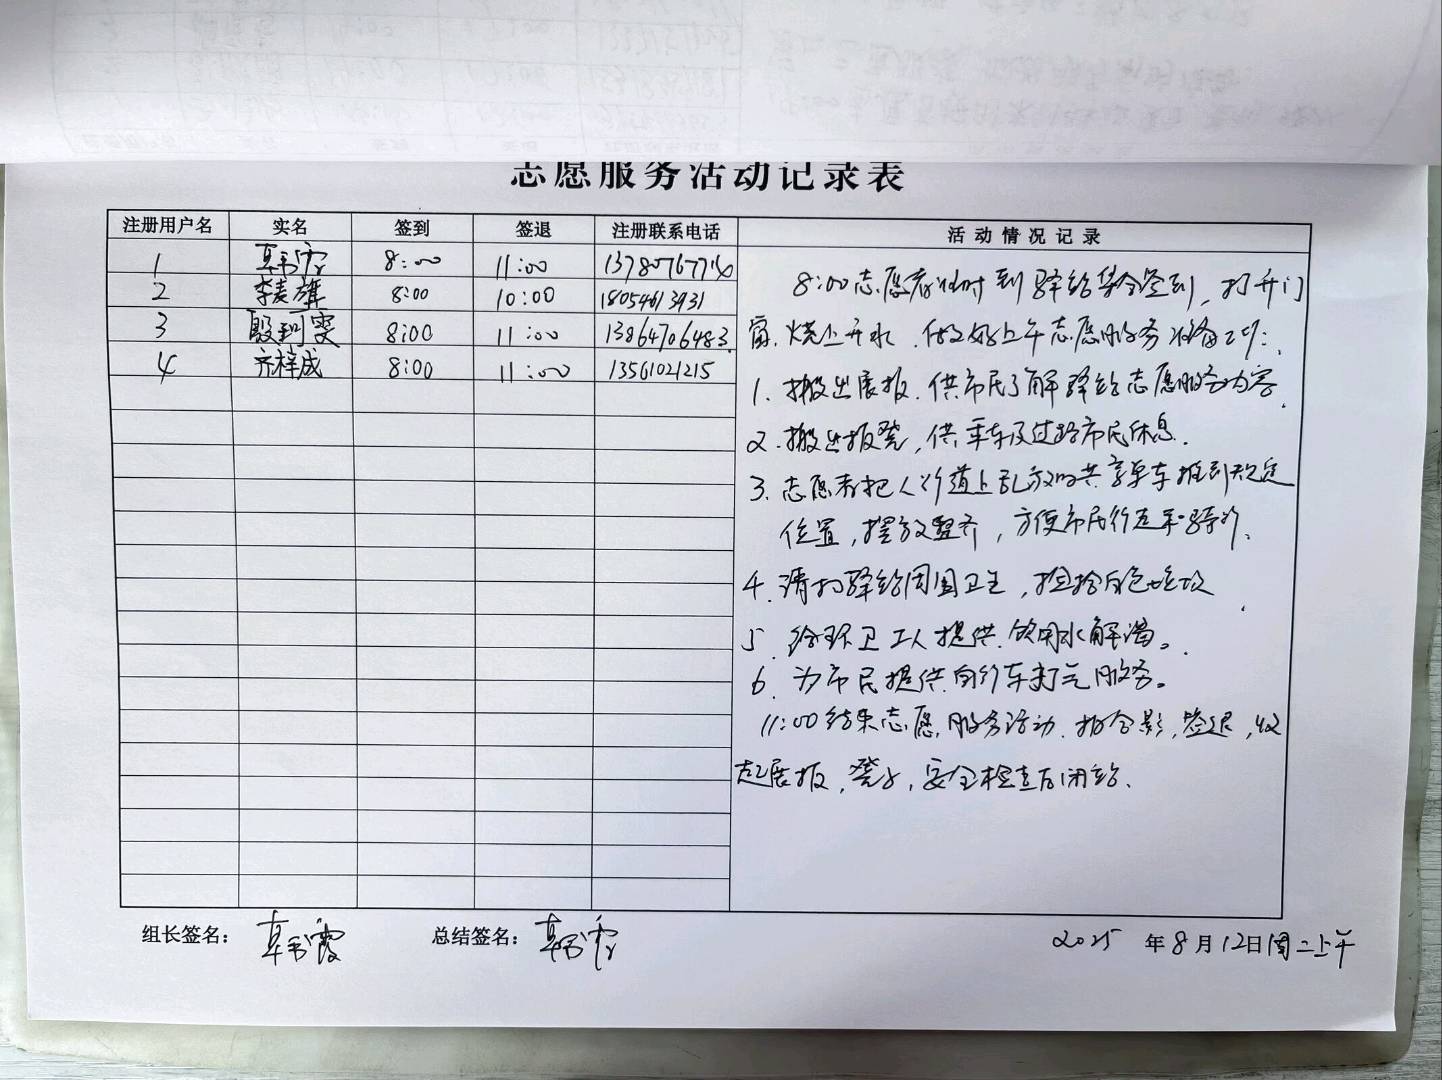 志愿服务活动记录表
注册用户名 实名 签到 签退 注册联系电话 活动情况记录
1 8:00 11:00 13780767740
2 李麦旗 8:00 10:00 18054613931
3 殷利雯 8:00 11:00 13864706483
4 齐梓成 8:00 11:00 13561021215
8:00志愿者准时到驿站集合签到,打开门
窗,烧上开水,做好上午志愿服务准备工作:
1.搬出展报,供市民了解驿站志愿服务内容.
2.搬出报凳,供乘车及过路市民休息.
3.志愿者把人行道上乱放的共享单车推到规定
位置,摆放整齐,方便市民行走和骑行.
4.清扫驿站周围卫生,捡拾白色垃圾.
5.给环卫工人提供饮用水解渴。
6.为市民提供自行车打气服务。
11:00结束志愿服务活动.拍合影,签退,收
起展报,凳子,安全检查后闭站.
组长签名: 总结签名: 2025年8月12日周二上午